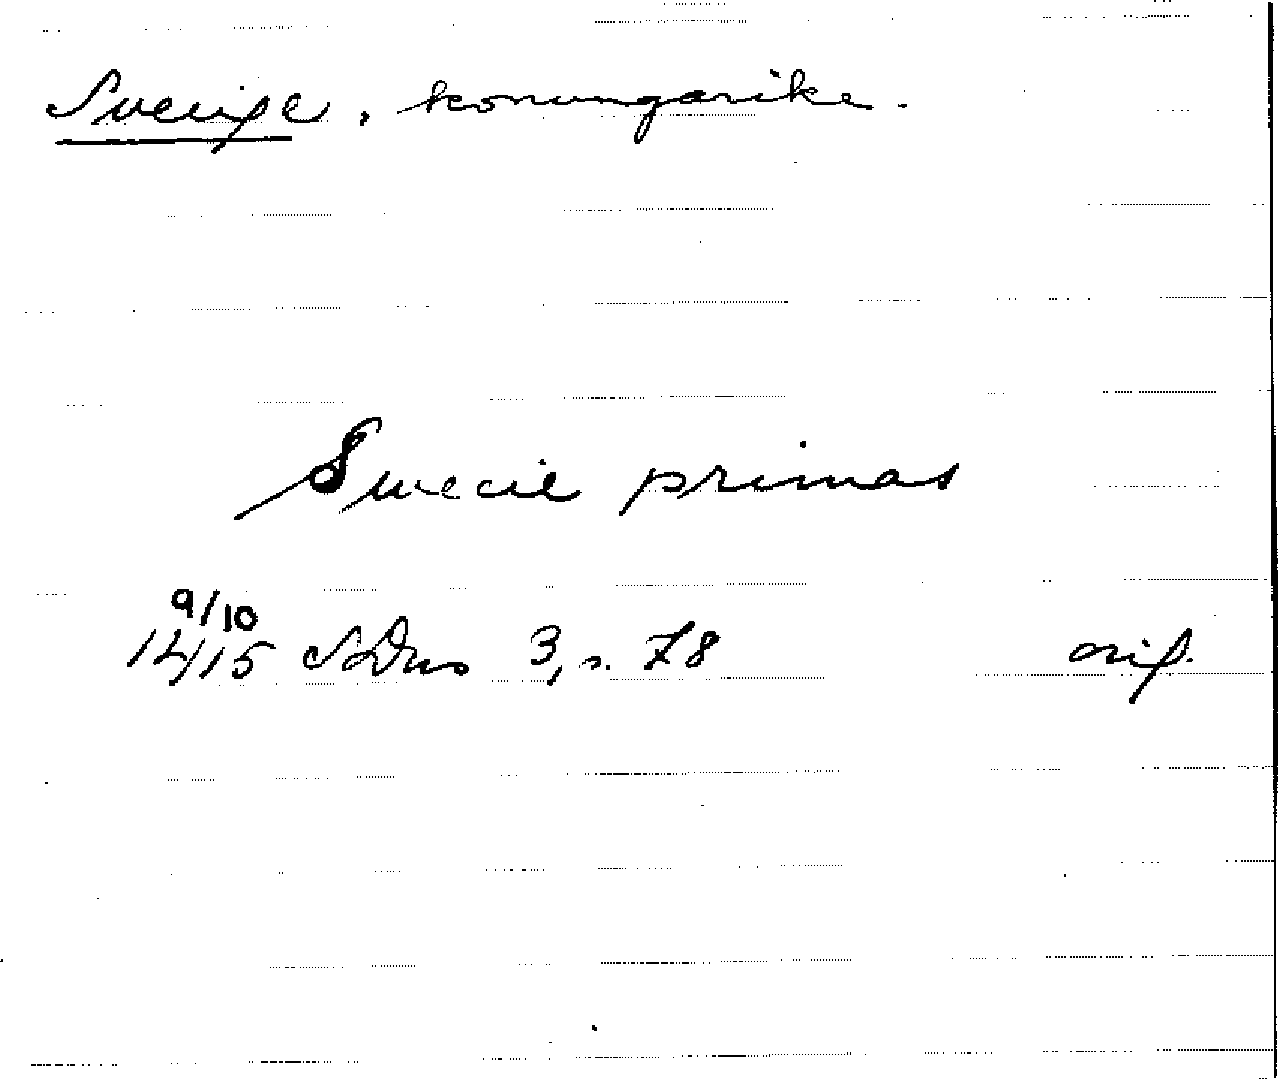 Sverige, konungarike.
Swecie primas
9/10
1415 SDns 3, s. 78 orig.